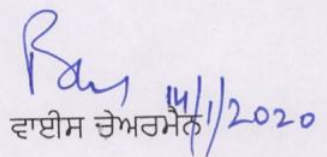 14/1/2020
ਵਾਈਸ ਚੇਅਰਮੈਨ